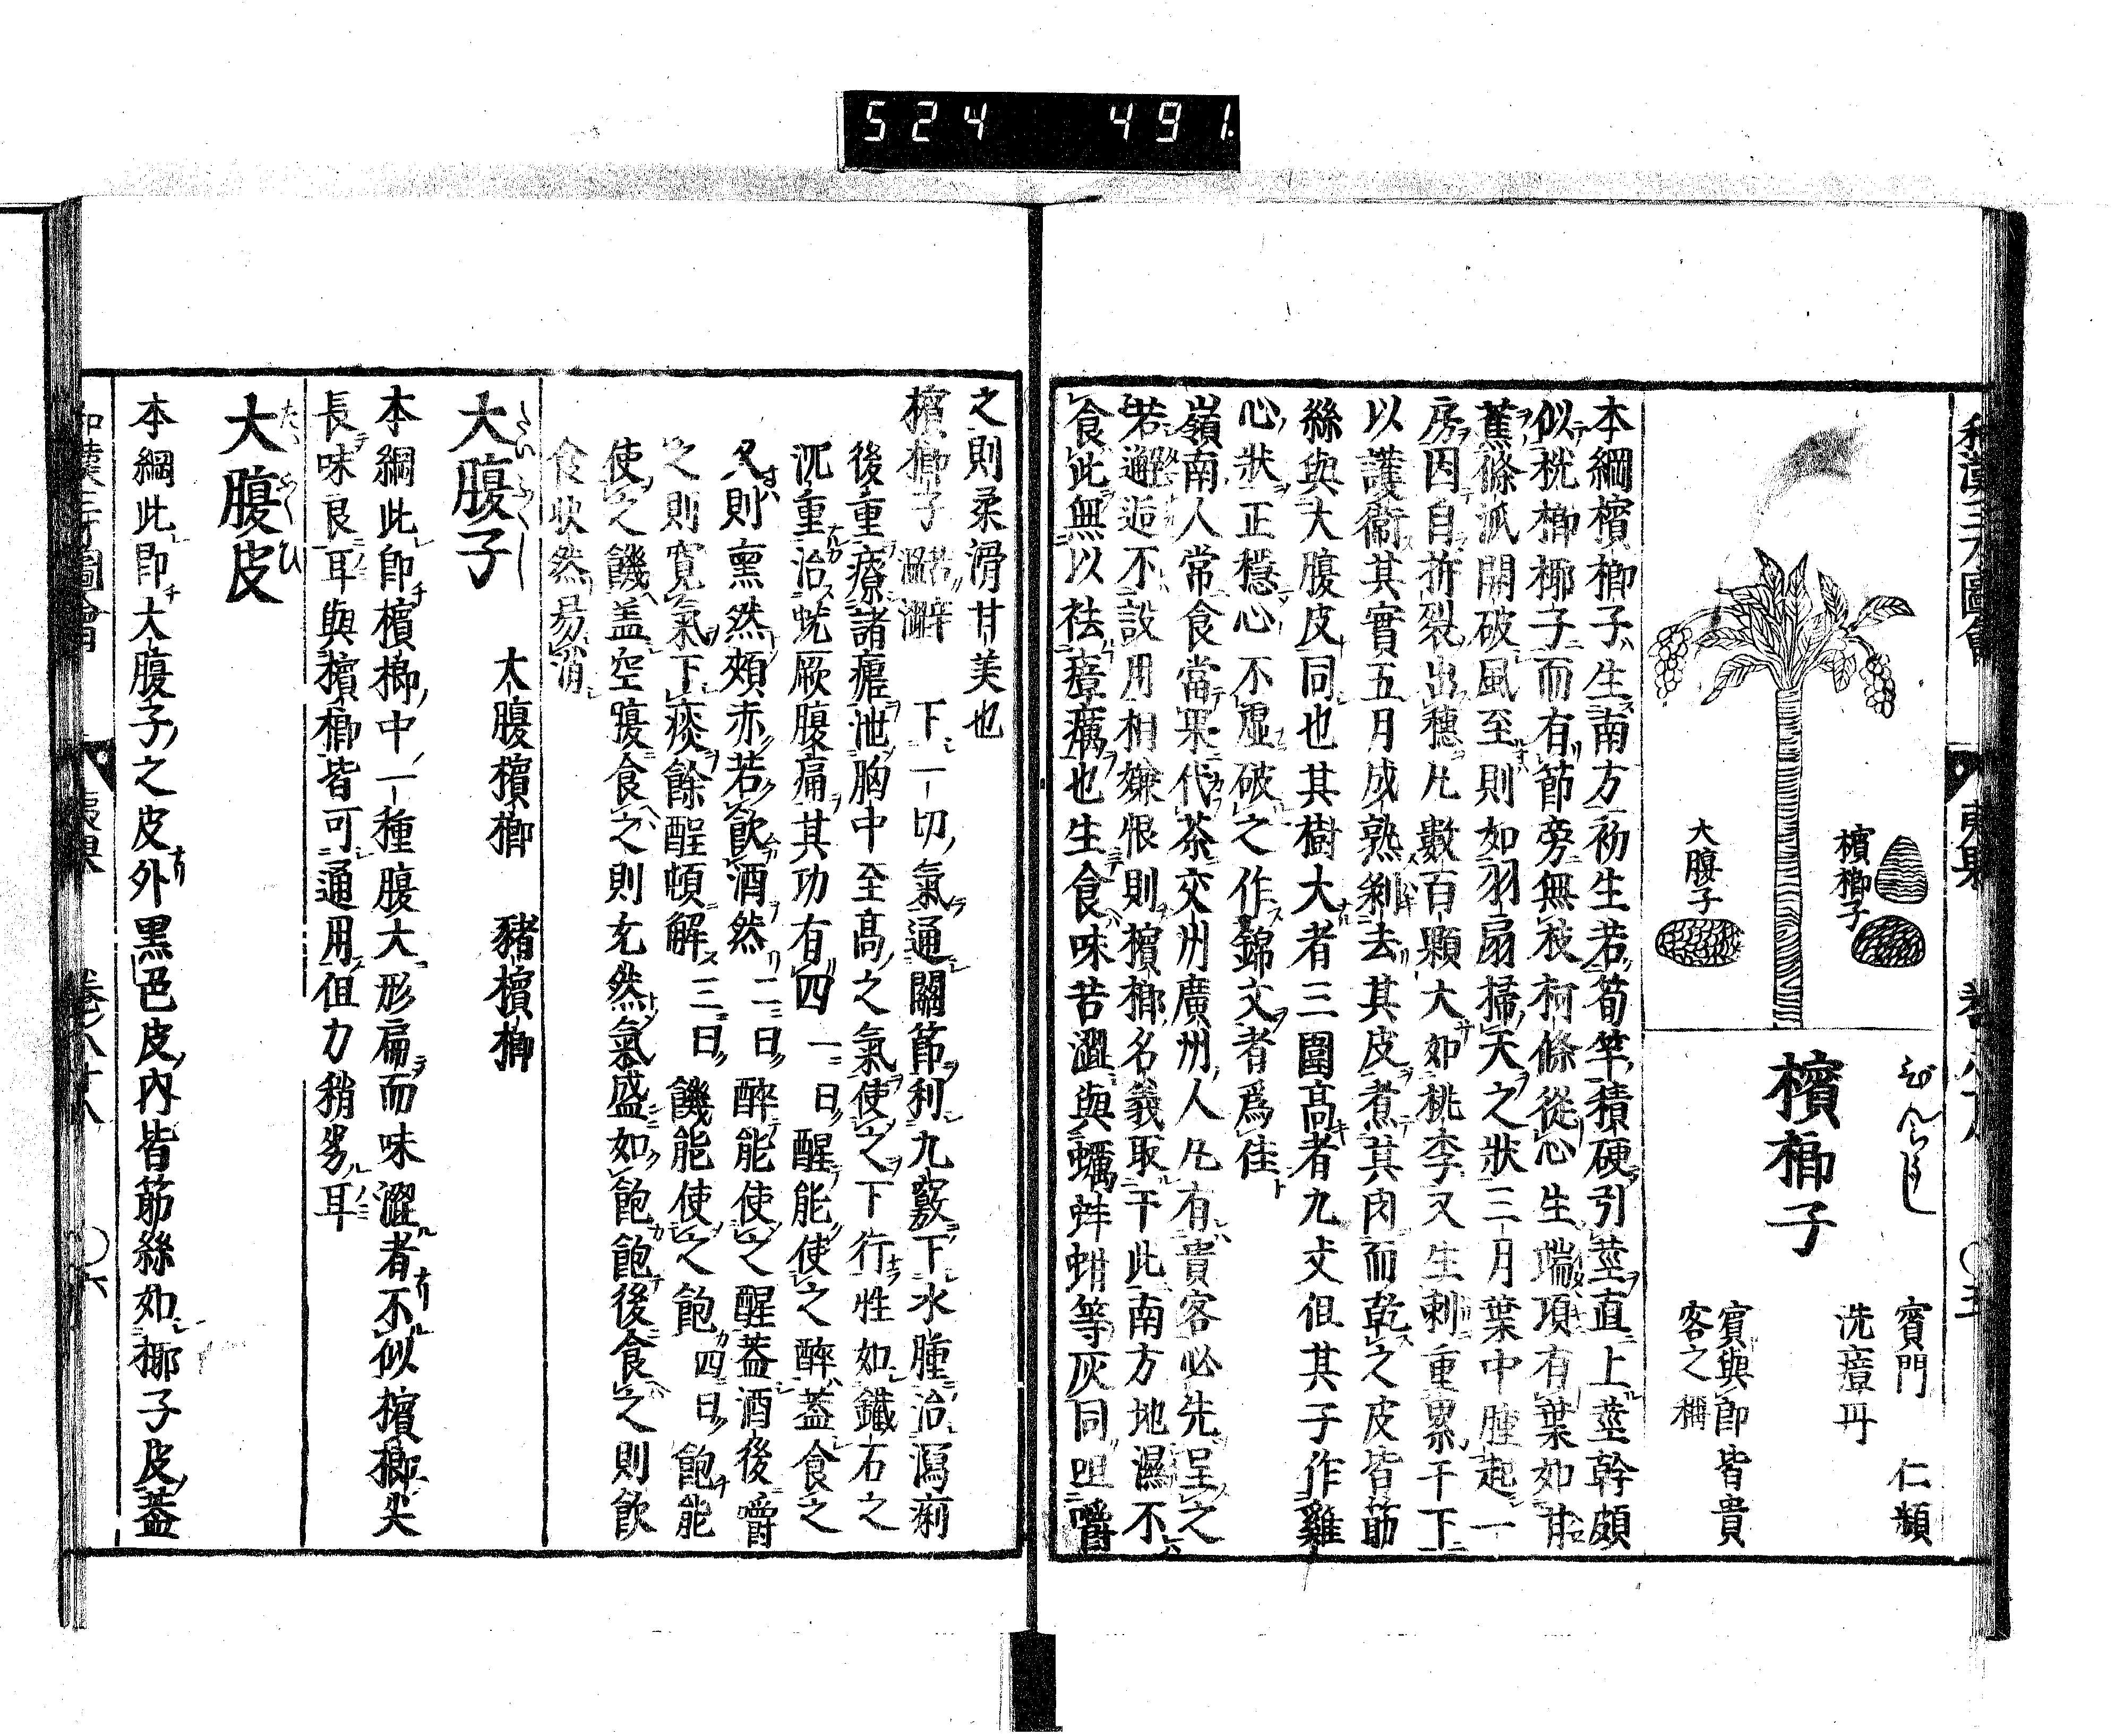 524 491.
和漢三才圖會
夷果
卷八十八
〇五
檳榔子
大腹子
びんらうじ
檳榔子
賓門 仁頻
洗瘴丹
賓與郎皆貴
客之稱
本綱檳榔子生南方初生若筍竿積硬引莖直上莖幹頗
似桄榔椰子而有節旁無枝柯條從心生端頂有葉如甘
蕉條派開破風至則如羽扇掃天之狀三月葉中腫起一
房因自拆裂出穗凡數百顆大如桃李又生刺重累于下
以護衞其實五月成熟剝去其皮煮其肉而乾之皮皆筋
絲與大腹皮同也其樹大者三圍高者九丈但其子作雞
心狀正穩心不虛破之作錦文者爲佳
嶺南人常食當果代茶交州廣州人凡有賓客必先呈之
若邂逅不設用相嫌恨則檳榔名義取于此南方地濕不
食此無以祛瘴癘也生食味苦澀與蠣蚌蚶等灰同咀嚼
之則柔滑甘美也
檳榔子 苦辛溫澀 下一切氣通關節利九竅下水腫治瀉痢
後重療諸瘧泄胸中至高之氣使之下行性如鐵石之
沉重治蚘厥腹痛其功有四 一曰醒能使之醉蓋食之
久則熏然頰赤若飮酒然 二曰醉能使之醒蓋酒後嚼
之則寛氣下痰餘酲頓解 三曰饑能使之飽 四曰飽能
使之饑盖空腹食之則充然氣盛如飽飽後食之則飮
食快然易消
大腹子 たいふくし
大腹檳榔 豬檳榔
本綱此即檳榔中一種腹大形扁而味澀者不似檳榔尖
長味良耳與檳榔皆可通用但力稍劣耳
大腹皮 たいふくひ
本綱此即大腹子之皮外黑色皮内皆筋絲如椰子皮蓋
和漢三才圖會
夷果
卷八十八
〇六